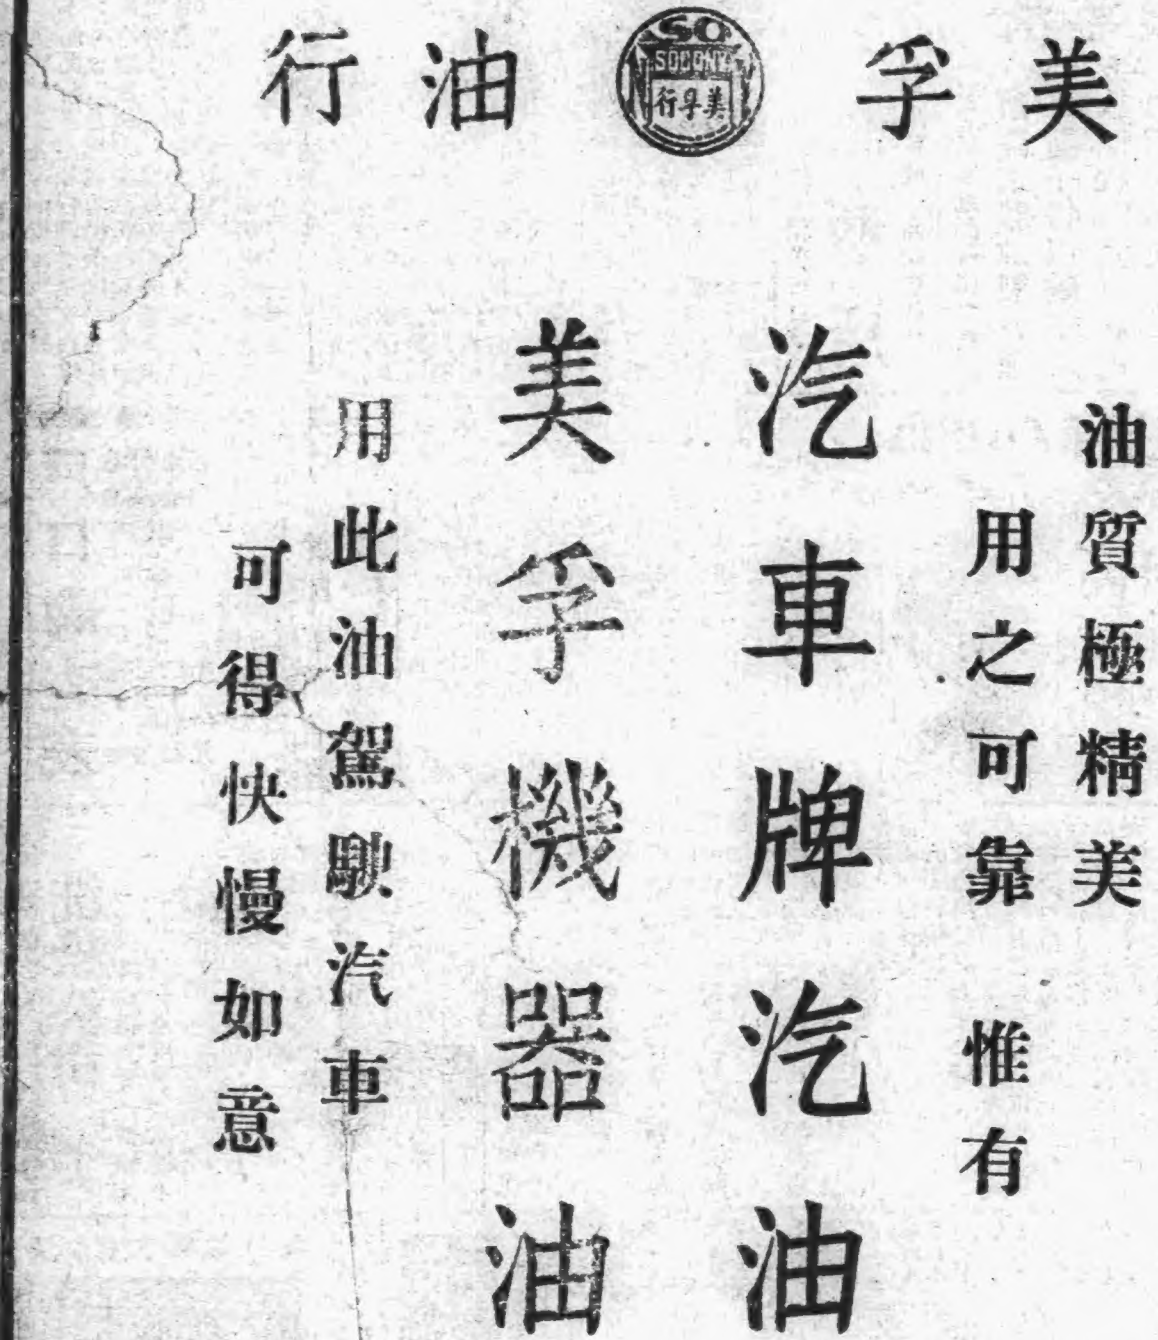 美孚油行
SO
SOCONY
美孚行
油質極精美
用之可靠 惟有
汽車牌汽油
美孚機器油
用此油駕駛汽車
可得快慢如意